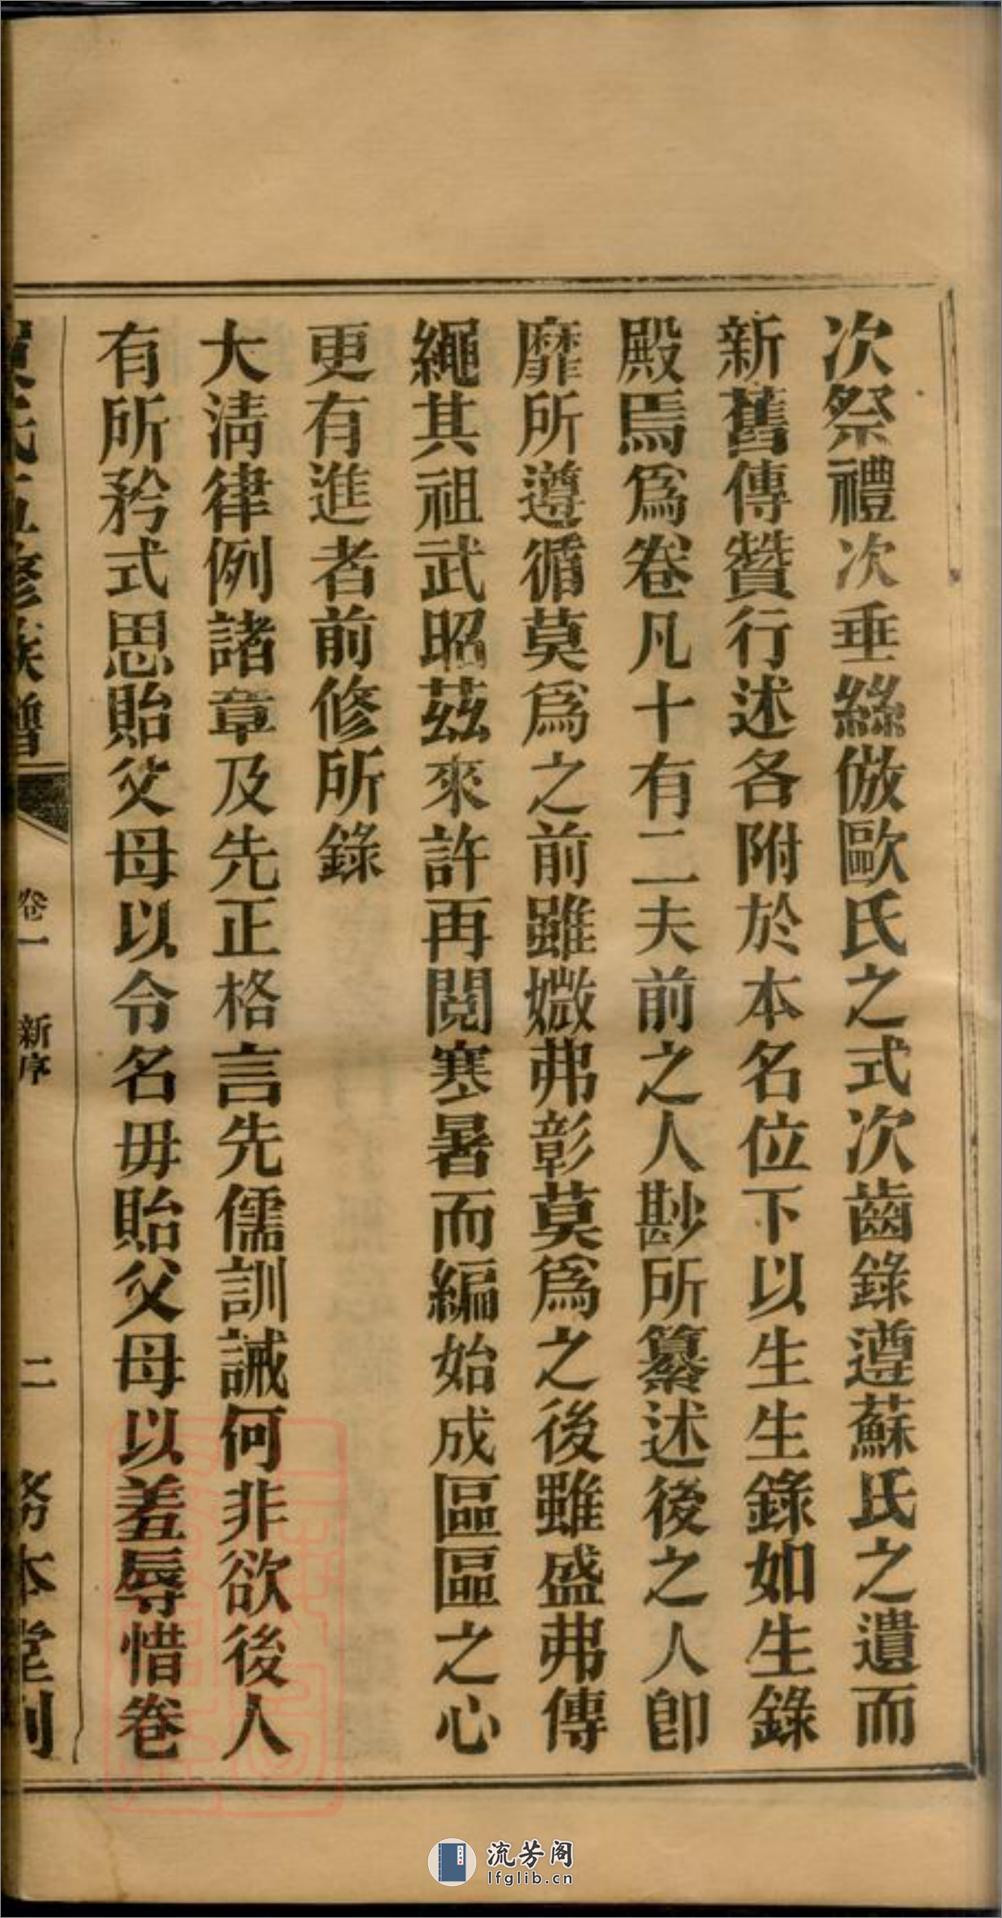 次祭禮次垂絲倣歐氏之式次齒錄遵蘇氏之遺而
新舊傳贊行述各附於本名位下以生生錄如生錄
殿焉為卷凡十有二夫前之人尠所纂述後之人卽
靡所遵循莫為之前雖媺弗彰莫為之後雖盛弗傳
繩其祖武昭茲來許再閱寒暑而編始成區區之心
更有進者前修所錄
大清律例諸章及先正格言先儒訓誡何非欲後人
有所矜式思貽父母以令名毋貽父母以羞辱惜卷
氏五修族譜
卷一 新序
二
務本堂刊
流芳阁
lfglib.cn